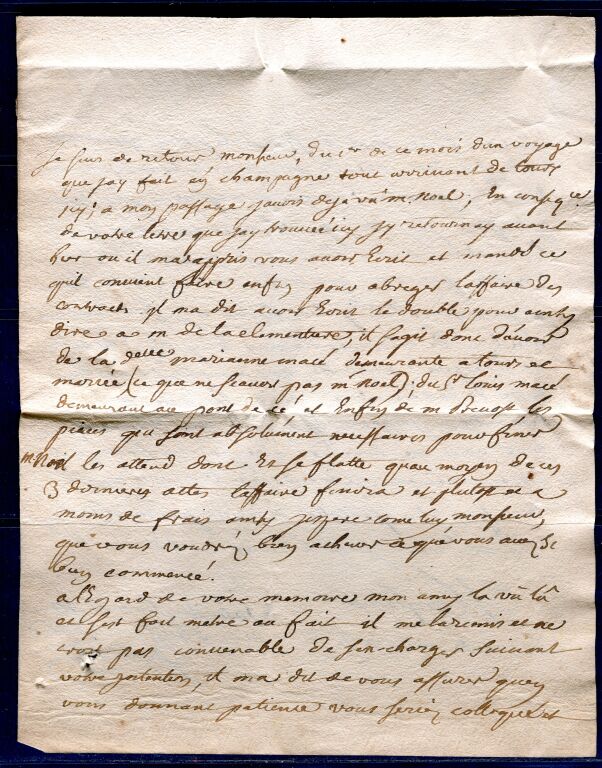 Je suis de retour monsieur, du 1er de ce mois dun voyage
que jay fait en champagne tout arrivant de tours
icy; a mon passage javois deja vû m. noel, En conseqce
de votre letre que jay trouvée icy jy retournay avant
hier ou il ma apris vous avoir Ecrit et mandé ce
quil convient faire enfin pour abreger laffaire des
contracts jl ma dit avoir Ecrit le double pour ainsy
dire a m de la clementure, il sagit donc davoir
de la delle marianne macé demeurante a tours et
mariée (ce que ne scavoit pas m Noel) du Sr louis macé
demeurant au pont de cé et Enfin de m les
pieces qui sont absolument necessaires pour finir
m. Noel les attend donc et se flatte quau moyen de ces
3 dernieres actes laffaire finira et plutost et a
moins de frais ainsy jespere come luy monsieur,
que vous voudrés bien achever ce que vous avez si
bien commencé.
a lEgard de votre memoire mon amy la vû la
et sest fait metre au fait il me la remis et ne
croit pas convenable de sen charger suivant
votre jntention, il ma dit de vous assurer quen
vous donnant patience vous seriés colloqué et